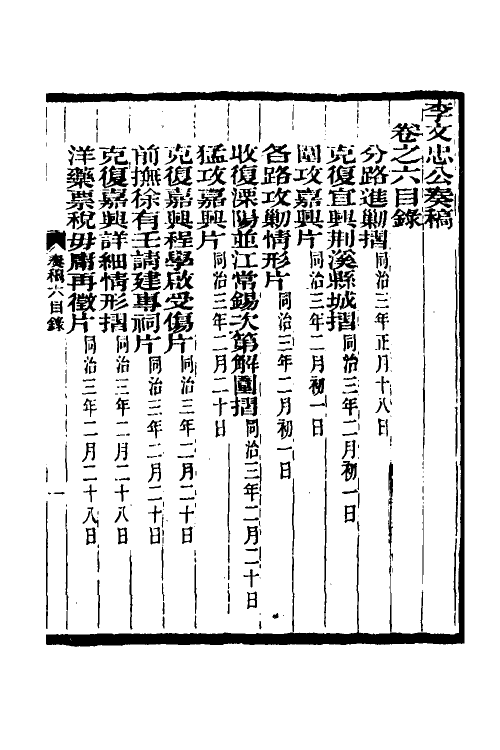 李文忠公奏稿
卷之六目錄
分路進勦摺同治三年正月十八日
克復宜興荆溪縣城摺同治三年二月初一日
圍攻嘉興片同治三年二月初一日
各路攻勦情形片同治三年二月初一日
收復溧陽並江常錫次第解圍摺同治三年二月二十日
猛攻嘉興片同治三年二月二十日
克復嘉興程學啟受傷片同治三年二月二十日
前撫徐有壬請建專祠片同治三年二月二十日
克復嘉興詳細情形摺同治三年二月二十八日
洋藥票稅毋庸再徵片同治三年二月二十八日
奏稿六目錄 一